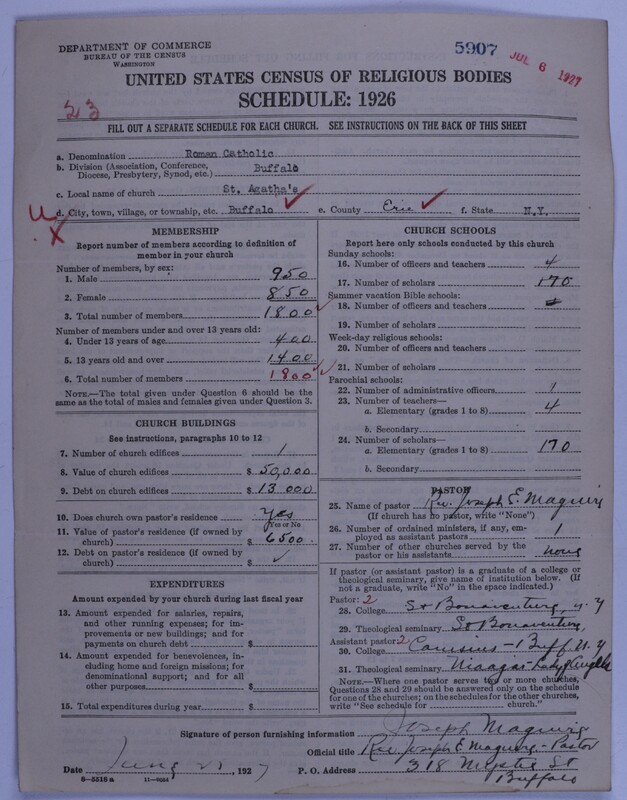 DEPARTMENT OF COMMERCE
BUREAU OF THE CENSUS
WASHINGTON
5907 JUL 6 1927
UNITED STATES CENSUS OF RELIGIOUS BODIES
SCHEDULE: 1926
23
FILL OUT A SEPARATE SCHEDULE FOR EACH CHURCH. SEE INSTRUCTIONS ON THE BACK OF THIS SHEET
a. Denomination Roman Catholic
b. Division (Association, Conference, Diocese, Presbytery, Synod, etc.) Buffalo
c. Local name of church St. Agatha's
d. City, town, village, or township, etc. Buffalo e. County Erie f. State N.Y.
MEMBERSHIP
Report number of members according to definition of
member in your church
Number of members, by sex:
1. Male 950
2. Female 850
3. Total number of members 1800
Number of members under and over 13 years old:
4. Under 13 years of age 400
5. 13 years old and over 1400
6. Total number of members 1800
NOTE.—The total given under Question 6 should be the
same as the total of males and females given under Question 3.
CHURCH BUILDINGS
See instructions, paragraphs 10 to 12
7. Number of church edifices 1
8. Value of church edifices $ 50,000
9. Debt on church edifices $ 13 000
10. Does church own pastor's residence Yes
(Yes or No)
11. Value of pastor's residence (if owned by
church) $ 6500
12. Debt on pastor's residence (if owned by
church) $ ✓
EXPENDITURES
Amount expended by your church during last fiscal year
13. Amount expended for salaries, repairs,
and other running expenses; for im-
provements or new buildings; and for
payments on church debt $
14. Amount expended for benevolences, in-
cluding home and foreign missions; for
denominational support; and for all
other purposes $
15. Total expenditures during year $
CHURCH SCHOOLS
Report here only schools conducted by this church
Sunday schools:
16. Number of officers and teachers 4
17. Number of scholars 170
Summer vacation Bible schools:
18. Number of officers and teachers
19. Number of scholars
Week-day religious schools:
20. Number of officers and teachers
21. Number of scholars
Parochial schools:
22. Number of administrative officers 1
23. Number of teachers—
a. Elementary (grades 1 to 8) 4
b. Secondary
24. Number of scholars—
a. Elementary (grades 1 to 8) 170
b. Secondary
PASTOR
25. Name of pastor Rev. Joseph E. Maguire
(If church has no pastor, write "None")
26. Number of ordained ministers, if any, em-
ployed as assistant pastors 1
27. Number of other churches served by the
pastor or his assistants none
If pastor (or assistant pastor) is a graduate of a college or
theological seminary, give name of institution below. (If
not a graduate, write "No" in the space indicated.)
Pastor: 2
28. College St Bonaventure, N. Y
29. Theological seminary St Bonaventure
Assistant pastor: 2
30. College Canisius - Buff. N. Y
31. Theological seminary
NOTE.—Where one pastor serves two or more churches,
Questions 28 and 29 should be answered only on the schedule
for one of the churches; on the schedules for the other churches,
write "See schedule for church."
Signature of person furnishing information Joseph Maguire
Official title Rev. Joseph E. Maguire - Pastor
Date 1927 P. O. Address 318 Mystic St
8-5518 a 11-9054 Buffalo